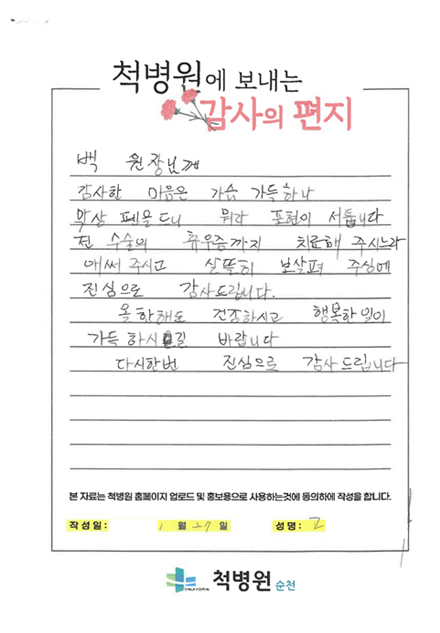 척병원에 보내는
감사의 편지
백 원장님께
감사한 마음은 가슴 가득하나
막상 펜을 드니 뭐라 표현이 서툽니다
전 수술의 휴우증까지 치료해 주시느라
애써 주시고 살뜰히 보살펴 주심에
진심으로 감사드립니다.
올 한해도 건강하시고 행복한 일이
가득 하시길 바랍니다
다시한번 진심으로 감사드립니다
본 자료는 척병원 홈페이지 업로드 및 홍보용으로 사용하는것에 동의하에 작성을 합니다.
작성일: 1 월 27 일 성명: 고
척병원 순천